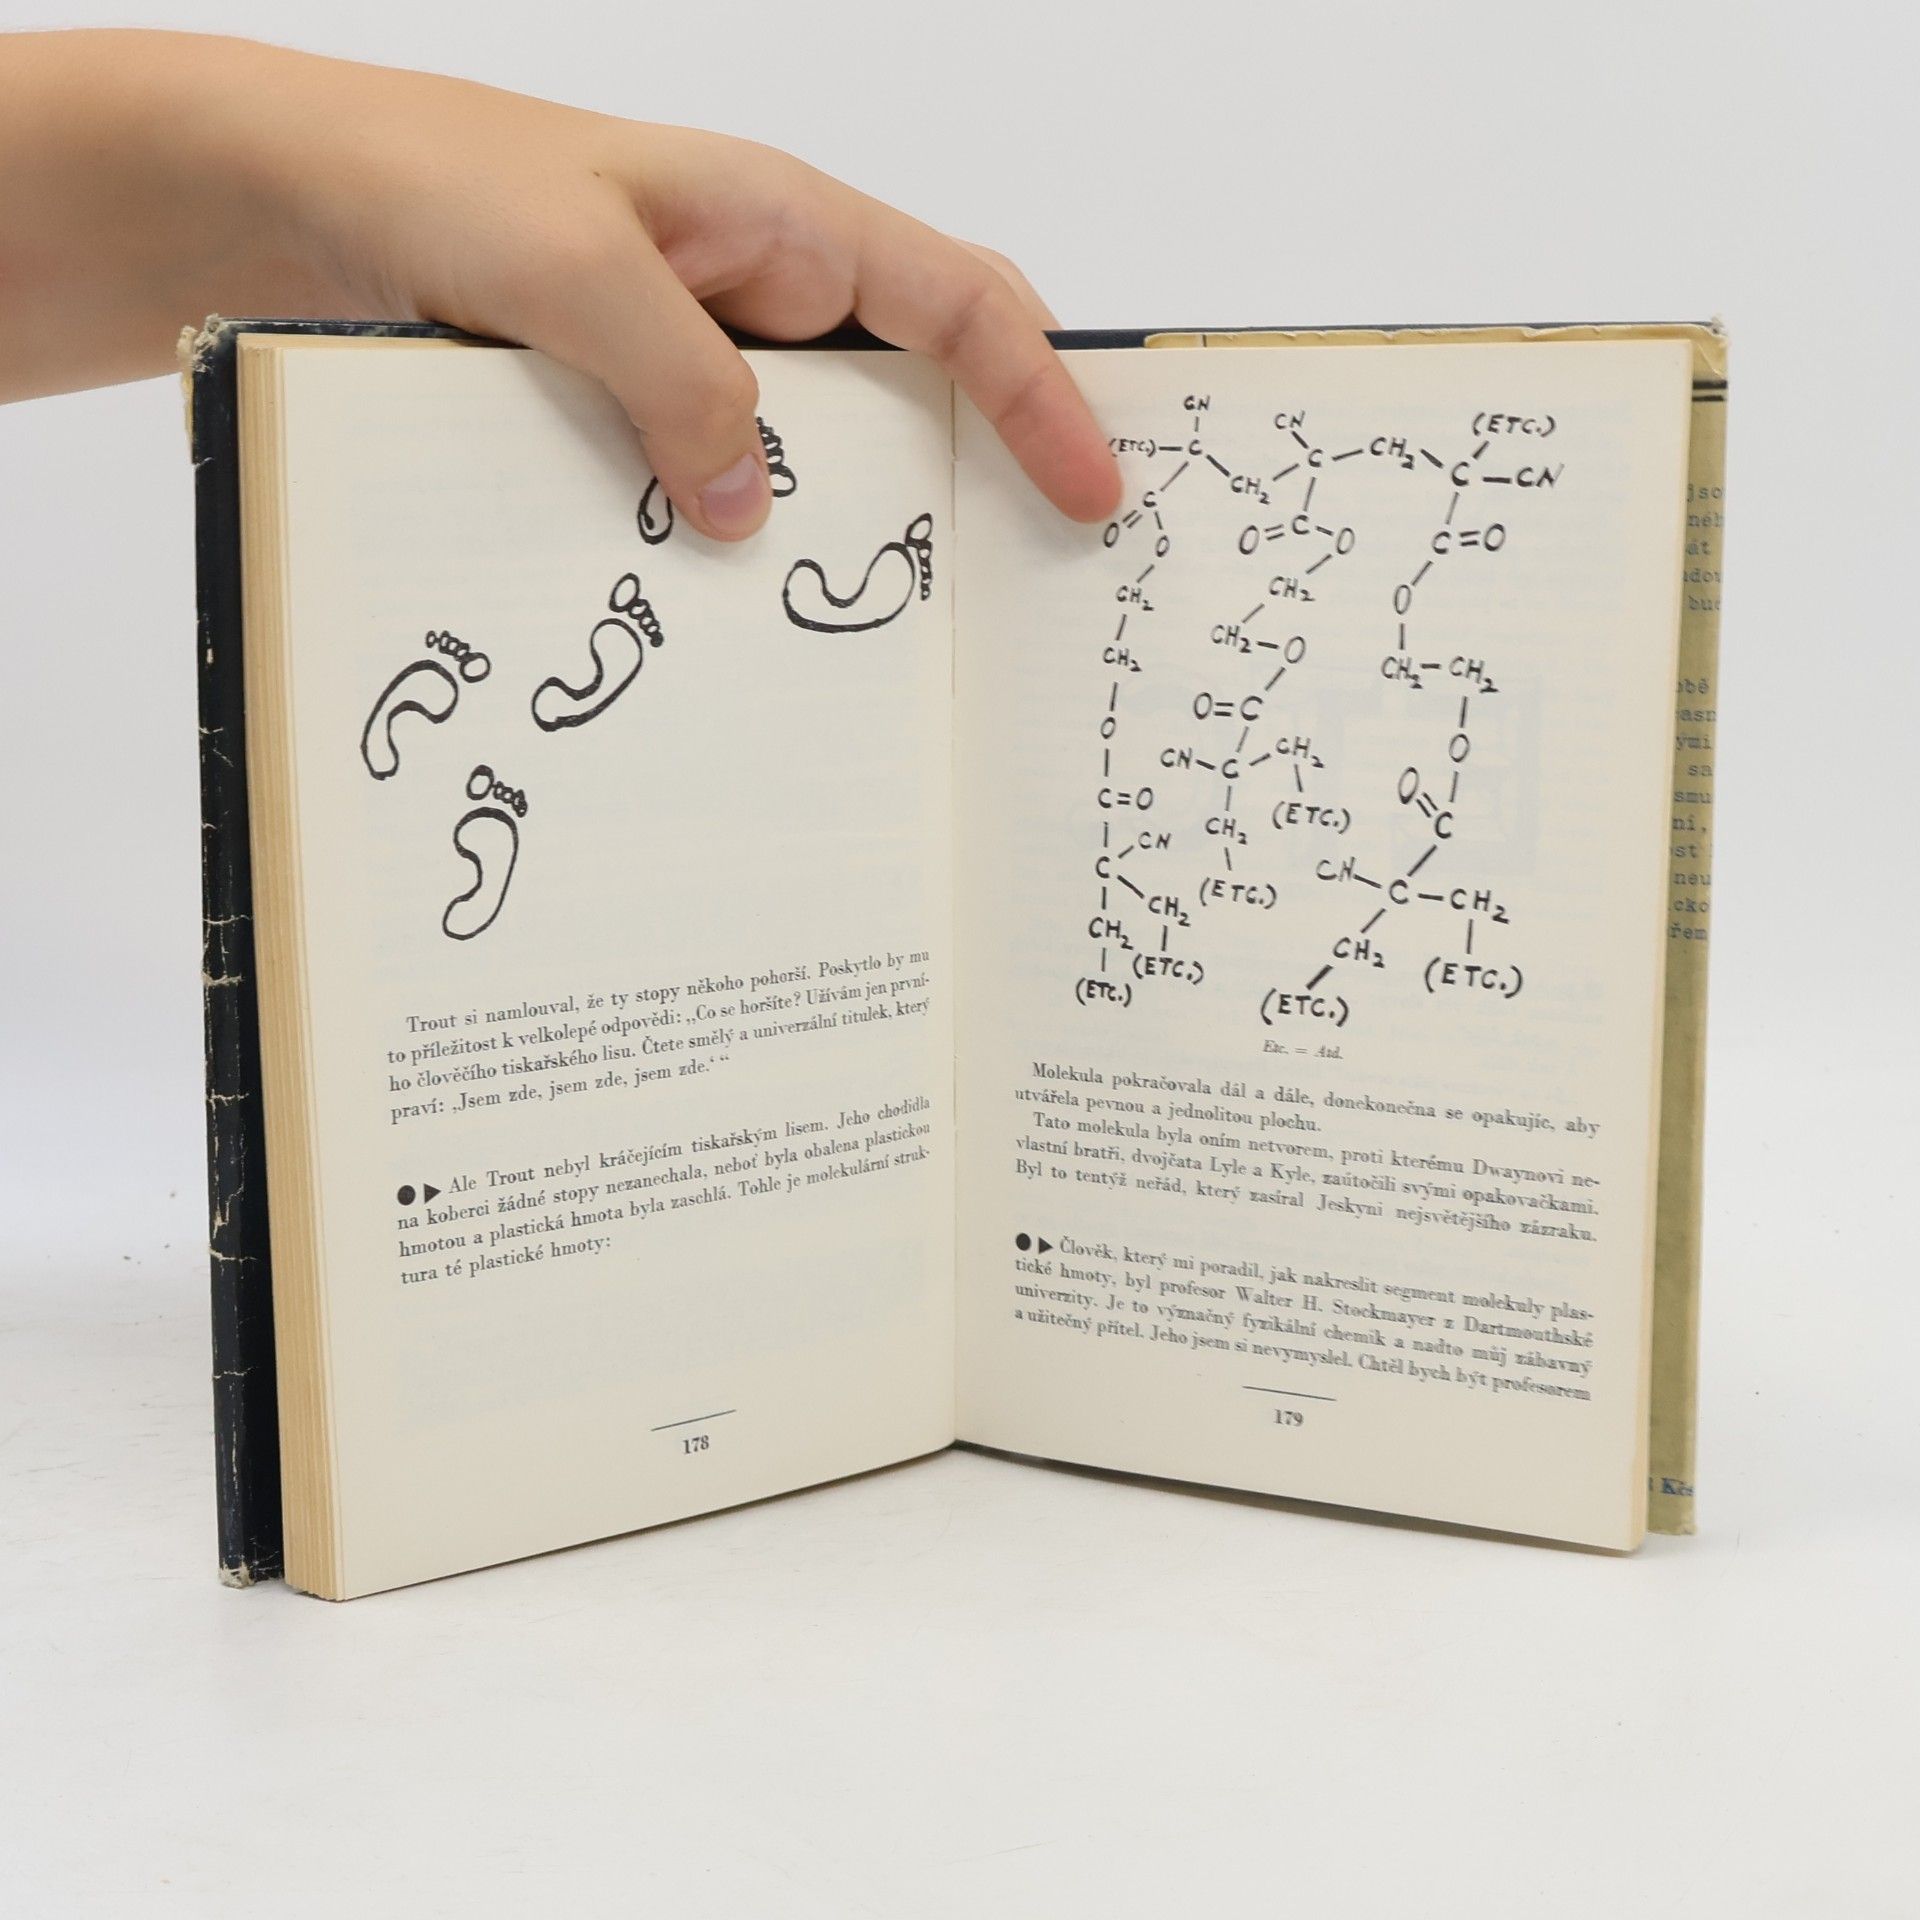 Trout si namlouval, že ty stopy někoho pohorší. Poskytlo by mu
to příležitost k velkolepé odpovědi: „Co se horšíte? Užívám jen první-
ho člověčího tiskařského lisu. Čtete smělý a univerzální titulek, který
praví: ‚Jsem zde, jsem zde, jsem zde.‘ “
●▶ Ale Trout nebyl kráčejícím tiskařským lisem. Jeho chodidla
na koberci žádné stopy nezanechala, neboť byla obalena plastickou
hmotou a plastická hmota byla zaschlá. Tohle je molekulární struk-
tura té plastické hmoty:
178
CN CN (ETC.)
(ETC.)—C C—CH2 C—CN
CH2
C C C=O
O= O O= O
O
CH2 CH2
CH2—O
CH2 CH2—CH2
O=C
O O
CN—C—CH2
C=O O=C
CH2 (ETC.)
CN
C CN—C—CH2
(ETC.)
CH2
CH2 CH2
(ETC.) (ETC.)
(ETC.) (ETC.)
Etc. = Atd.
Molekula pokračovala dál a dále, donekonečna se opakujíc, aby
utvářela pevnou a jednolitou plochu.
Tato molekula byla oním netvorem, proti kterému Dwaynovi ne-
vlastní bratři, dvojčata Lyle a Kyle, zaútočili svými opakovačkami.
Byl to tentýž neřád, který zasíral Jeskyni nejsvětějšího zázraku.
●▶ Člověk, který mi poradil, jak nakreslit segment molekuly plas-
tické hmoty, byl profesor Walter H. Stockmayer z Dartmouthské
univerzity. Je to význačný fyzikální chemik a nadto můj zábavný
a užitečný přítel. Jeho jsem si nevymyslel. Chtěl bych být profesorem
179
Kčs